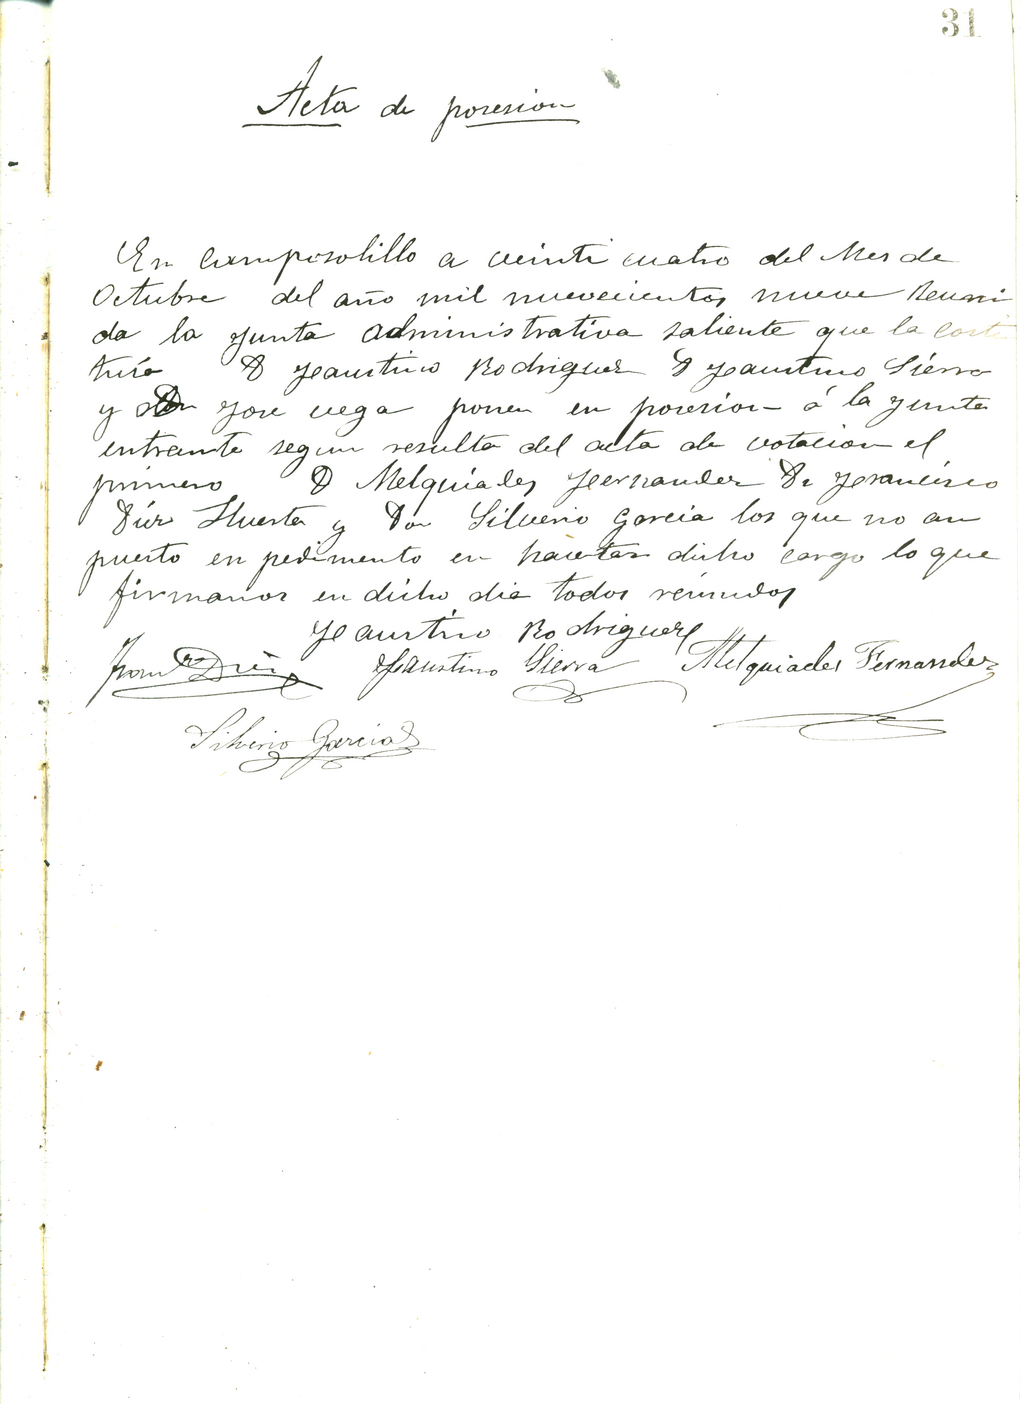 31
Acta de posesion
En Camposolillo a veinti cuatro del Mes de
Octubre del año mil nuevecientos nueve Reuni
da la Junta administrativa saliente que la costi
tuia D Faustino Rodriguez D Faustino Sierra
y Don Jose vega ponen en posesion á la Junta
entrante segun resulta del acta de votacion el
primero D Melquiades Fernandez Dn Francisco
Diez Huerta y Don Silverio Garcia los que no an
puesto en pedimento en haceptar dicho cargo lo que
firmamos en dicho dia todos reunidos
Faustino Rodriguez
Franco Diez Faustino Sierra Melquiades Fernandez
Silverio Garcia